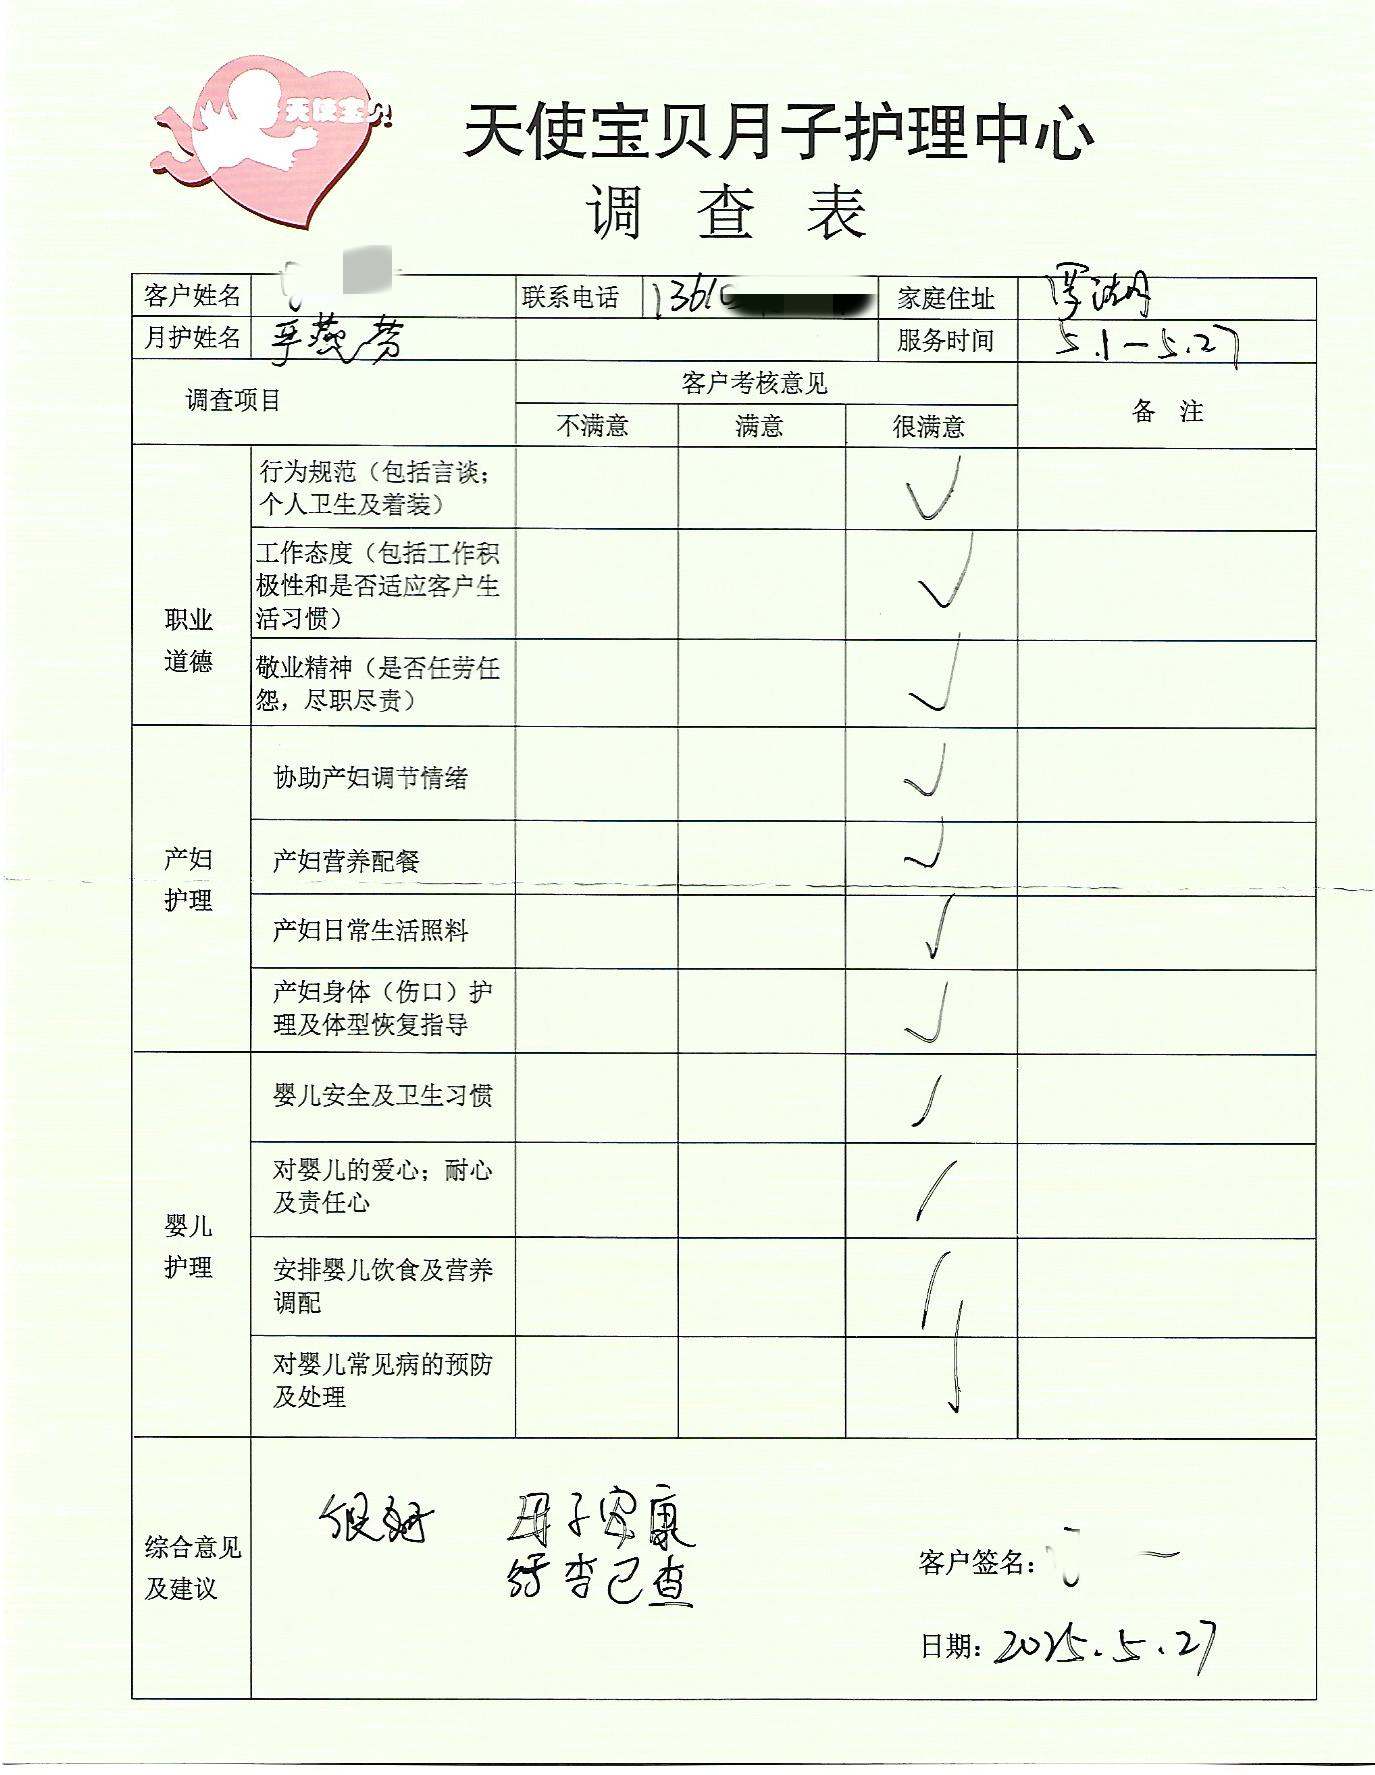 天使宝贝
天使宝贝月子护理中心
调查表
客户姓名 联系电话 1361 家庭住址 罗湖
月护姓名 燕芳 服务时间 5.1—5.27
调查项目 客户考核意见 备 注
不满意 满意 很满意
职业
道德
行为规范（包括言谈；
个人卫生及着装）
工作态度（包括工作积
极性和是否适应客户生
活习惯）
敬业精神（是否任劳任
怨，尽职尽责）
产妇
护理
协助产妇调节情绪
产妇营养配餐
产妇日常生活照料
产妇身体（伤口）护
理及体型恢复指导
婴儿
护理
婴儿安全及卫生习惯
对婴儿的爱心；耐心
及责任心
安排婴儿饮食及营养
调配
对婴儿常见病的预防
及处理
综合意见
及建议
很好 母子安康
行李已查
客户签名：
日期：2025.5.27